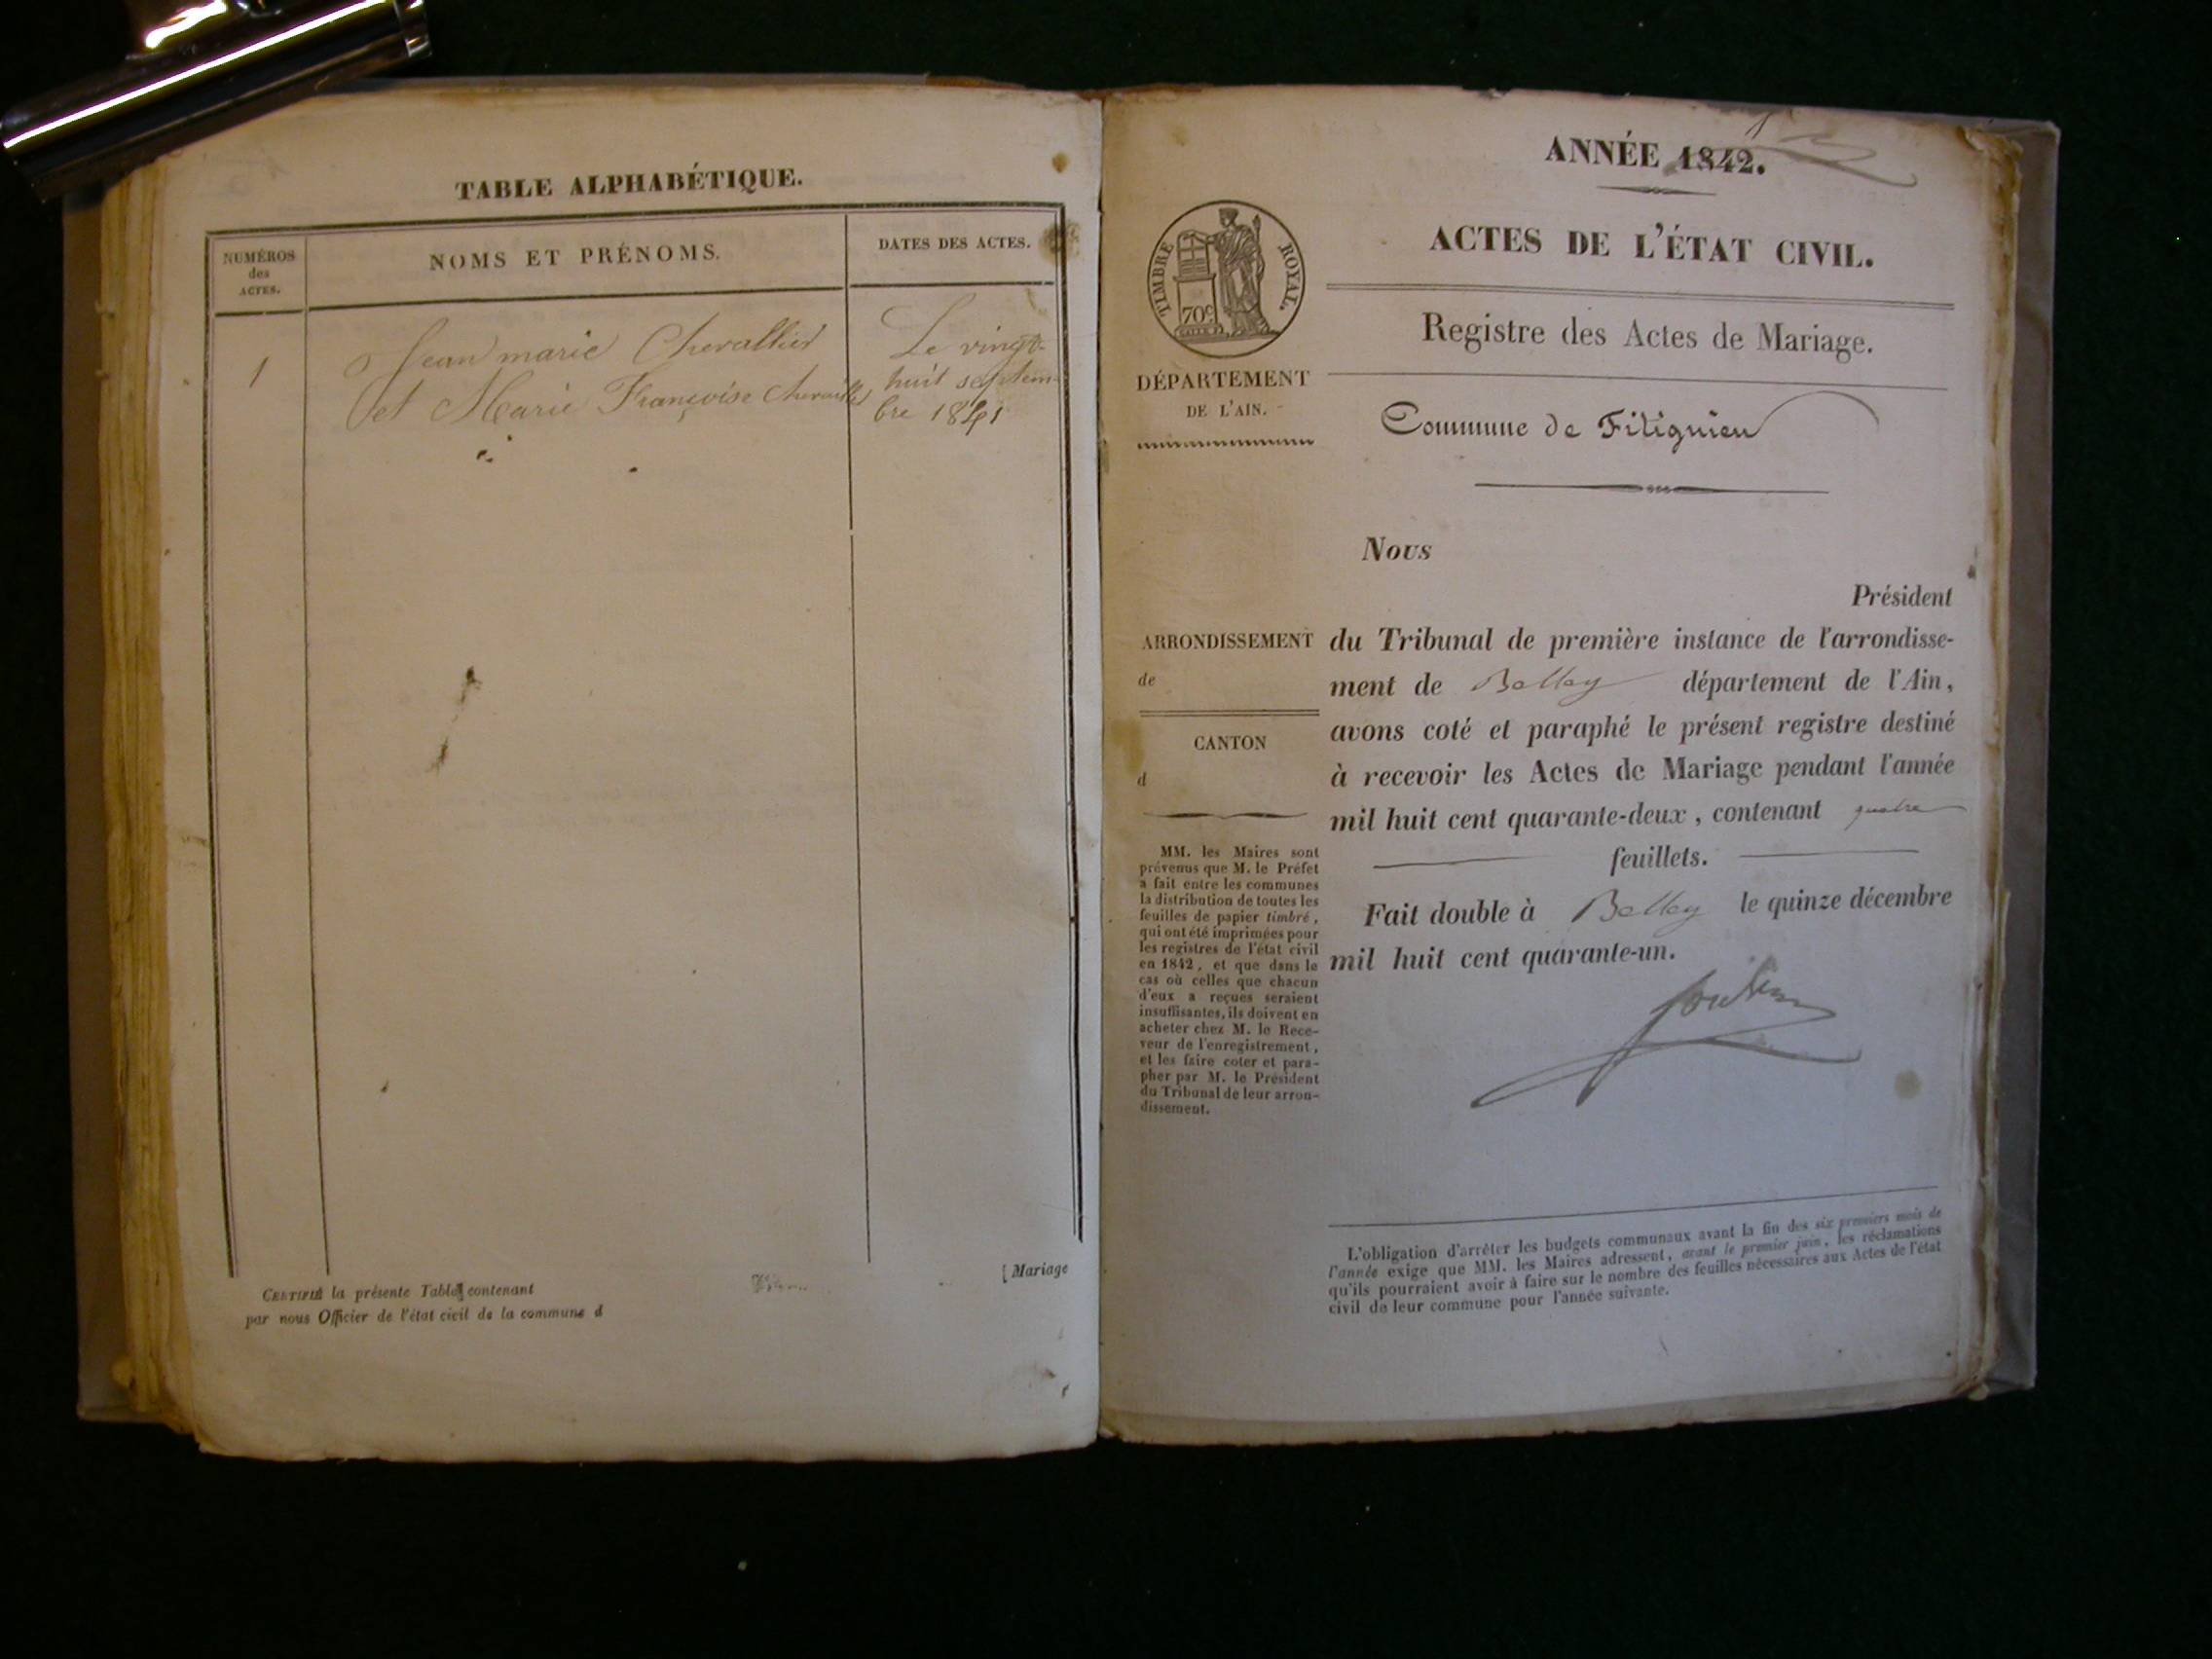 TABLE ALPHABÉTIQUE.
NUMÉROS
des
ACTES.
NOMS ET PRÉNOMS.
DATES DES ACTES.
1
Jean marie Chevallier
et Marie Françoise
Le vingt-
huit septem-
bre 1841
[Mariage
CERTIFIÉ la présente Table contenant
par nous Officier de l'état civil de la commune d
ANNÉE 1842.
TIMBRE ROYAL.
70c
ACTES DE L'ÉTAT CIVIL.
Registre des Actes de Mariage.
DÉPARTEMENT
DE L'AIN.
Commune de Fitignieu
Nous
Président
ARRONDISSEMENT
de
CANTON
d
du Tribunal de première instance de l'arrondisse-
ment de Belley département de l'Ain,
avons coté et paraphé le présent registre destiné
à recevoir les Actes de Mariage pendant l'année
mil huit cent quarante-deux, contenant quatre
feuillets.
Fait double à Belley le quinze décembre
mil huit cent quarante-un.
MM. les Maires sont
prévenus que M. le Préfet
a fait entre les communes
la distribution de toutes les
feuilles de papier timbré,
qui ont été imprimées pour
les registres de l'état civil
en 1842, et que dans le
cas où celles que chacun
d'eux a reçues seraient
insuffisantes, ils doivent en
acheter chez M. le Rece-
veur de l'enregistrement,
et les faire coter et para-
pher par M. le Président
du Tribunal de leur arron-
dissement.
L'obligation d'arrêter les budgets communaux avant la fin des six premiers mois de
l'année exige que MM. les Maires adressent, avant le premier juin, les réclamations
qu'ils pourraient avoir à faire sur le nombre des feuilles nécessaires aux Actes de l'état
civil de leur commune pour l'année suivante.